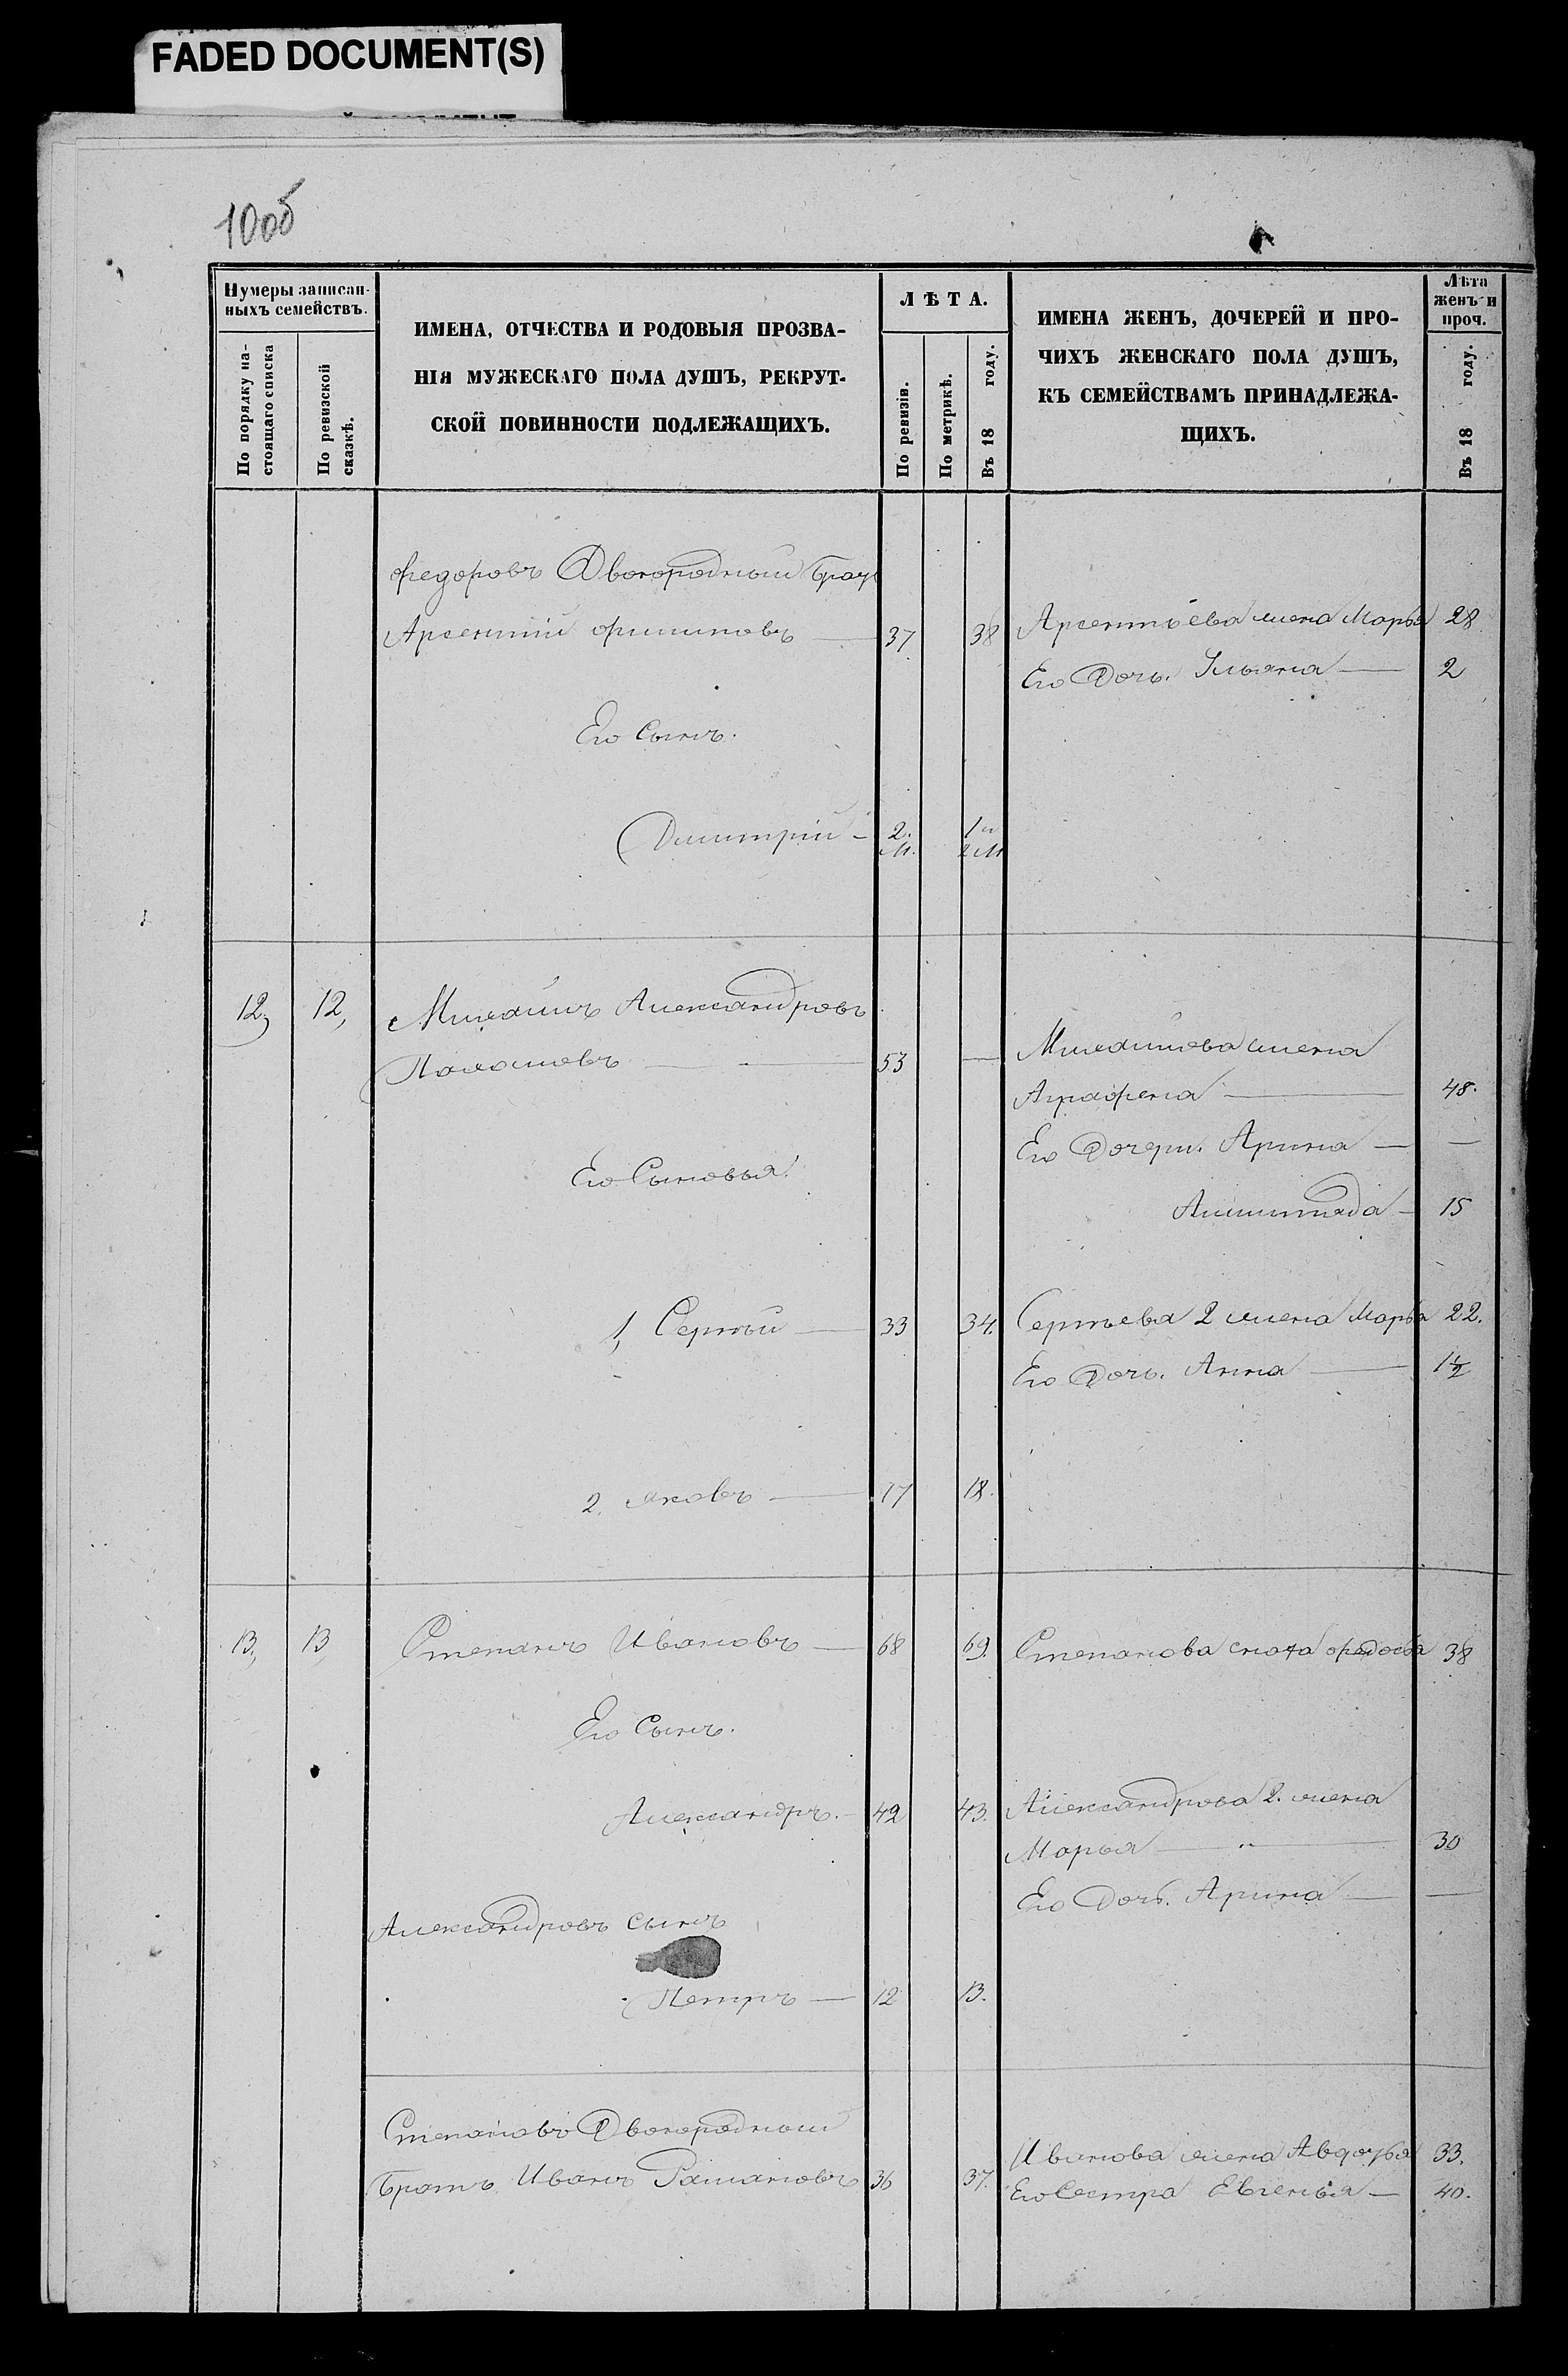 FADED DOCUMENT(S)
100б
Нумеры записан-
ныхъ семействъ.
По порядку на-
стоящаго списка
По ревизской
сказкѣ.
ИМЕНА, ОТЧЕСТВА И РОДОВЫЯ ПРОЗВА-
НІЯ МУЖЕСКАГО ПОЛА ДУШЪ, РЕКРУТ-
СКОЙ ПОВИННОСТИ ПОДЛЕЖАЩИХЪ.
ЛѢТА.
По ревизіи.
По метрикѣ.
Въ 18 году.
ИМЕНА ЖЕНЪ, ДОЧЕРЕЙ И ПРО-
ЧИХЪ ЖЕНСКАГО ПОЛА ДУШЪ,
КЪ СЕМЕЙСТВАМЪ ПРИНАДЛЕЖА-
ЩИХЪ.
Лѣта
женъ и
проч.
Въ 18 году.
Федоровъ Двоюродный Братъ
Арсентій Филиповъ — 37 38 Арсентьева жена Марья 28
Его Дочь. Ульяна — 2
Его Сынъ.
Дмитрій — 2. м. 1 и 2 м
12, 12, Михайлъ Александровъ
53 — Михайлова жена
Аграфена — 48.
Его Дочери. Арина — —
Его Сыновья:
15
1, Сергѣй — 33 34. Сергѣева 2 жена Марья 22.
Его Дочь. Анна — 1½
2. Яковъ — 17 18.
13, 13 Степанъ Ивановъ — 68 69. Степанова сноха Федосья 38
Его Сынъ.
Александръ. — 42 43. Александрова 2. жена
Марья — " — 30
Его Дочь. Арина — —
Александровъ сынъ
Петръ — 12 13.
Степановъ Двоюродный
Братъ Иванъ 36 37. Иванова жена Авдотья 33.
Его Сестра Евгенья — 40.